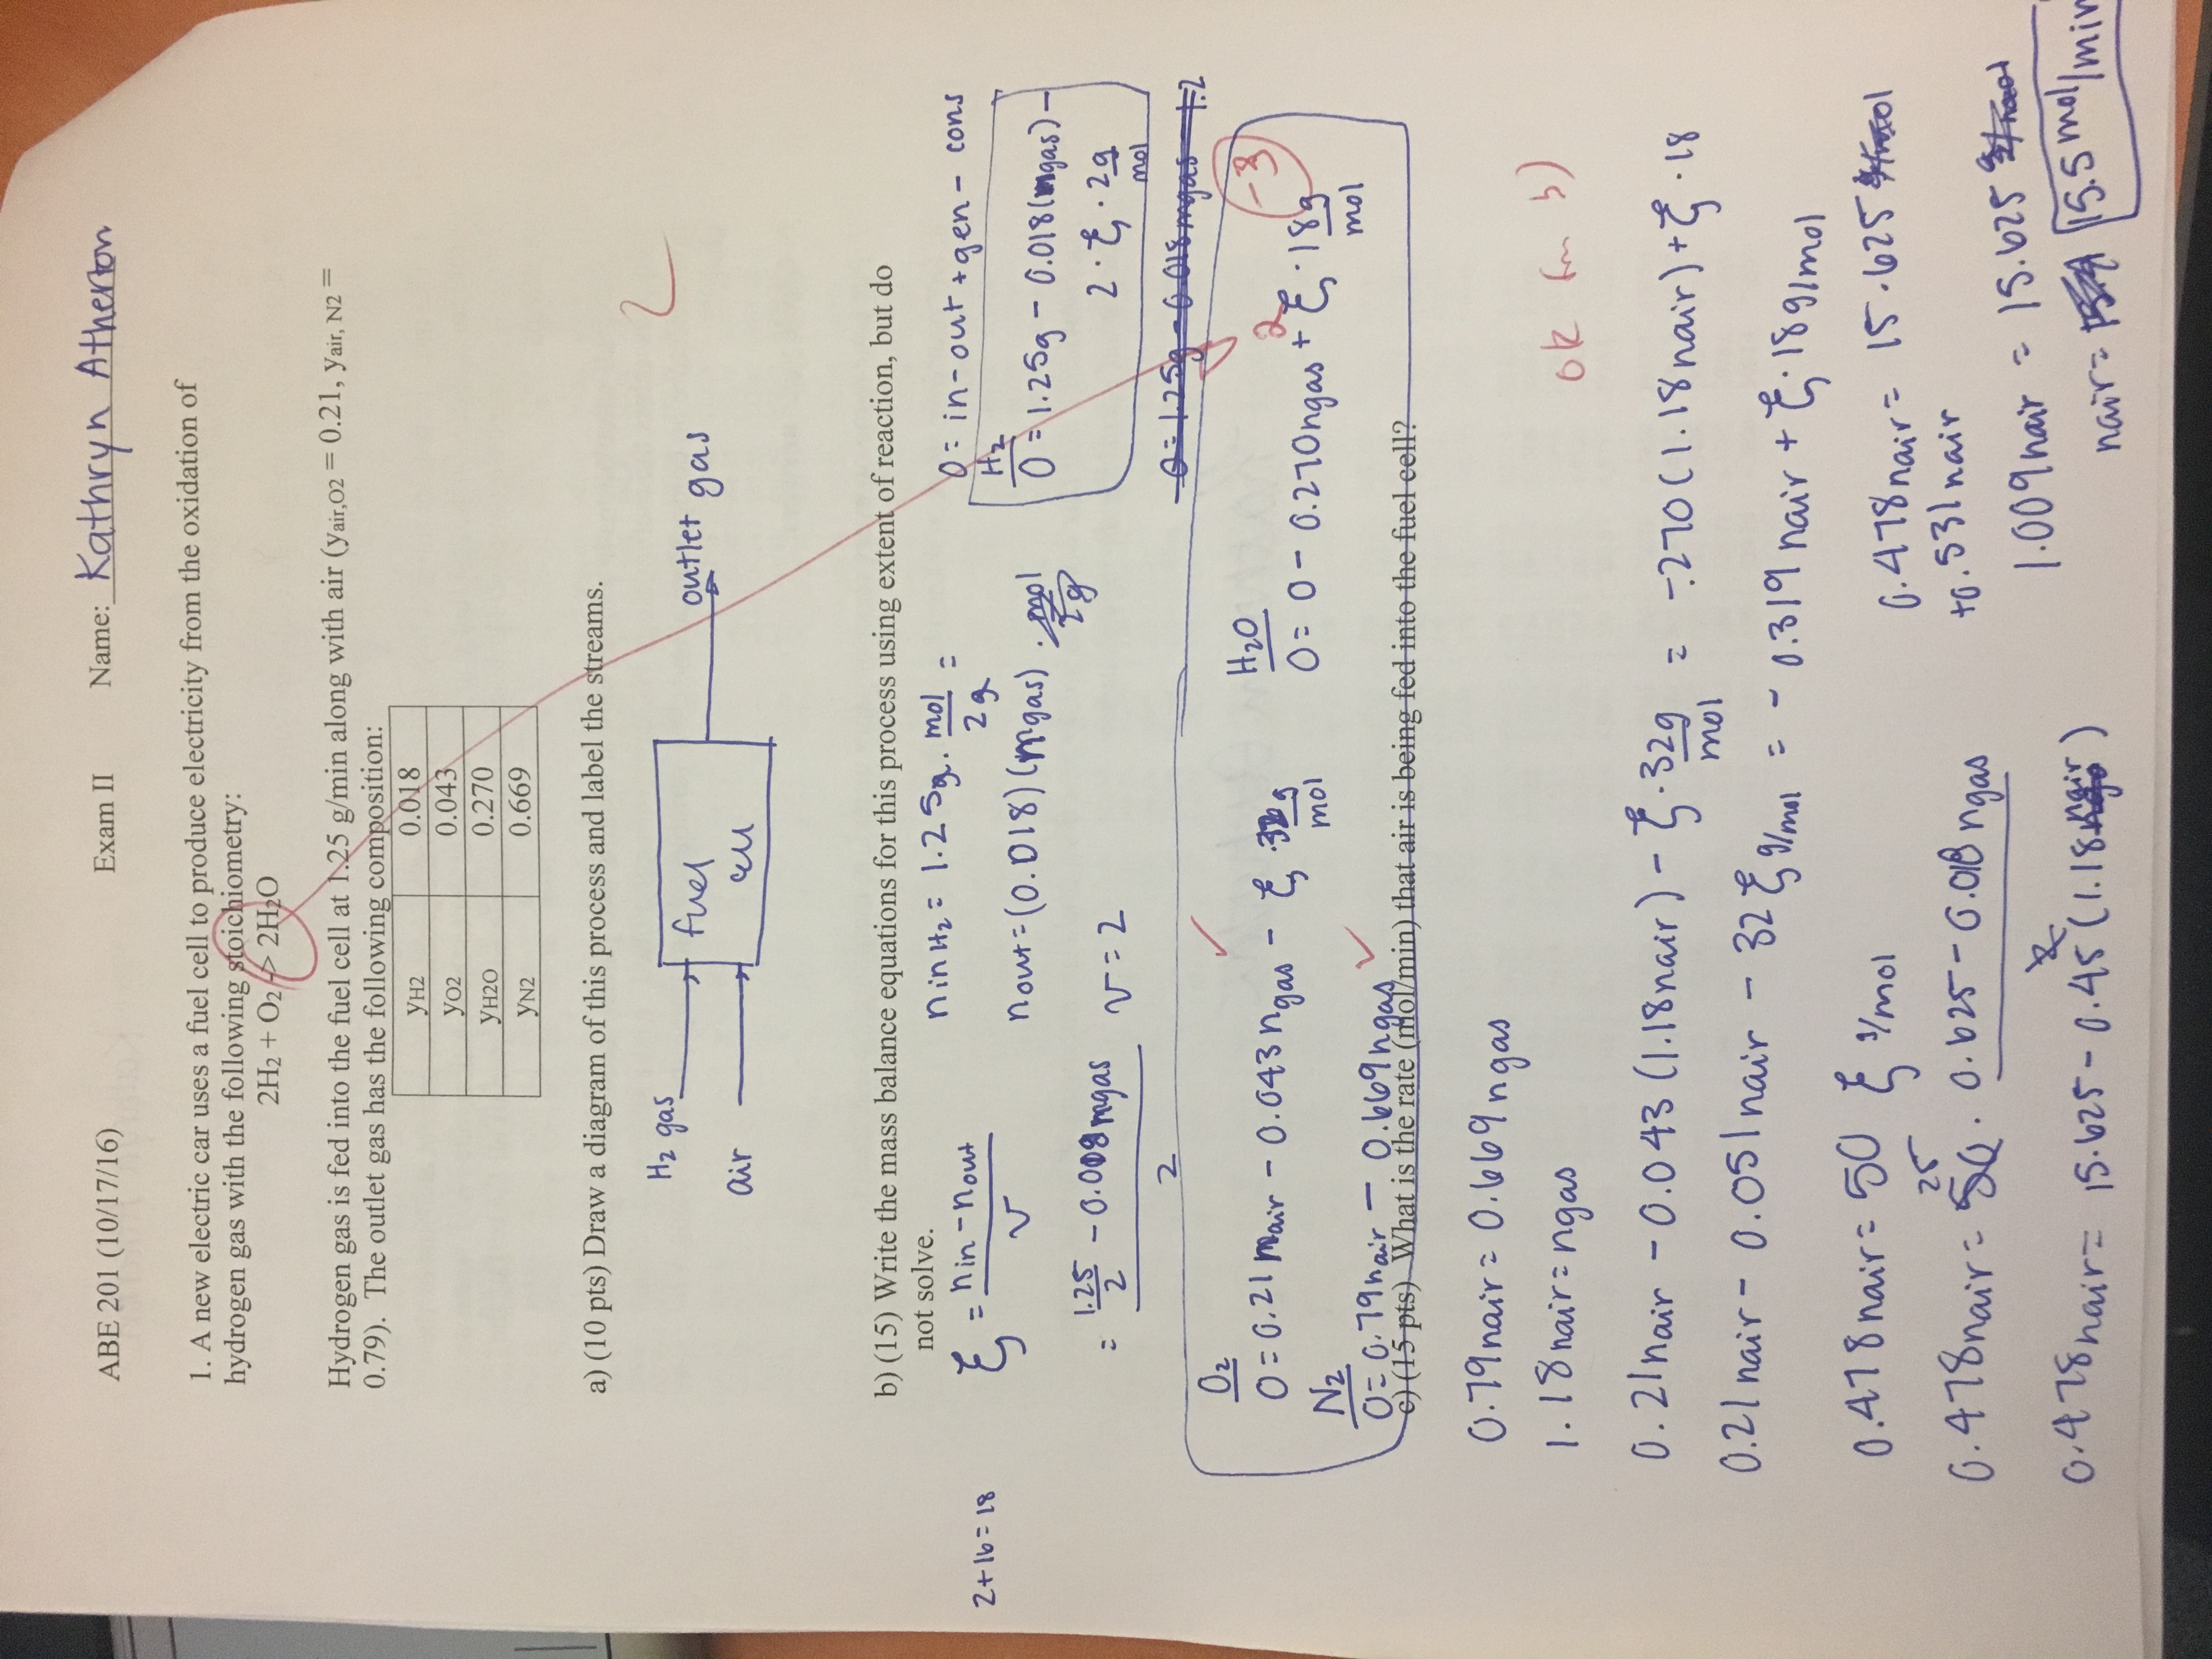 ABE 201 (10/17/16) Exam II Name: Kathryn Atherton
1. A new electric car uses a fuel cell to produce electricity from the oxidation of
hydrogen gas with the following stoichiometry:
2H2 + O2 -> 2H2O
Hydrogen gas is fed into the fuel cell at 1.25 g/min along with air (yair,O2 = 0.21, yair, N2 =
0.79). The outlet gas has the following composition:
yH2 0.018
yO2 0.043
yH2O 0.270
yN2 0.669
a) (10 pts) Draw a diagram of this process and label the streams.
2
H2 gas
air
fuel
cell
outlet gas
b) (15) Write the mass balance equations for this process using extent of reaction, but do
not solve.
2+16=18
ξ = nin - nout / ν
nin H2 = 1.25g · mol / 2g =
0 = in - out + gen - cons
nout = (0.018)(mgas) · mol / 2g
H2
0 = 1.25g - 0.018(mgas) -
2 · ξ · 2g / mol
= 1.25/2 - 0.009mgas / 2
ν = 2
0 = 1.25g - 0.018mgas - 1.2
O2
0 = 0.21mair - 0.043ngas - ξ · 32g / mol
H2O
-3
2
0 = 0 - 0.270ngas + ξ · 18g / mol
N2
0 = 0.79nair - 0.669ngas
c) (15 pts) What is the rate (mol/min) that air is being fed into the fuel cell?
0.79nair = 0.669ngas
1.18nair = ngas
ok for b)
0.21nair - 0.043(1.18nair) - ξ · 32g / mol = -.270(1.18nair) + ξ · 18
0.21nair - 0.051nair - 32ξ g/mol = -0.319nair + ξ · 18g/mol
0.478nair = 50 ξ g/mol
0.478nair = 50 25 · 0.625 - 0.018ngas / 2
0.478nair = 15.625 - 0.45(1.18nair)
0.478nair = 15.625 g/mol
+0.531nair
1.009nair = 15.625
nair = 15.5 mol/min